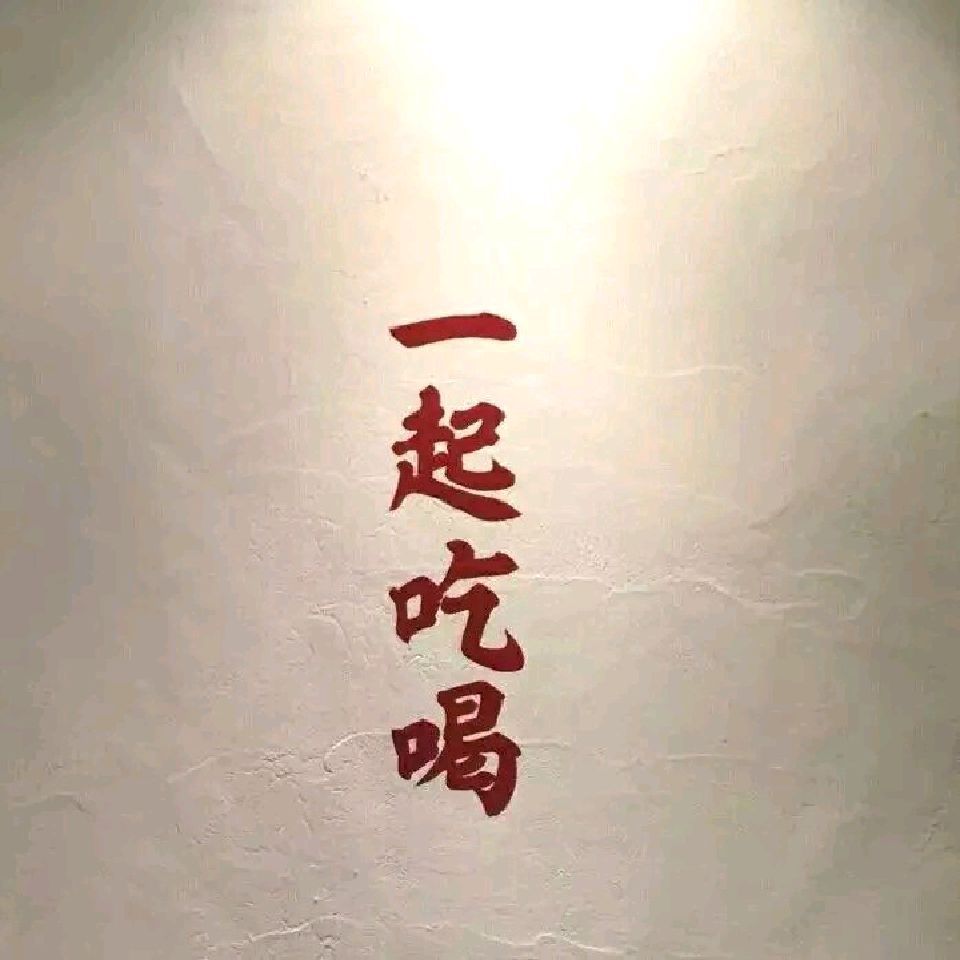 一起吃喝